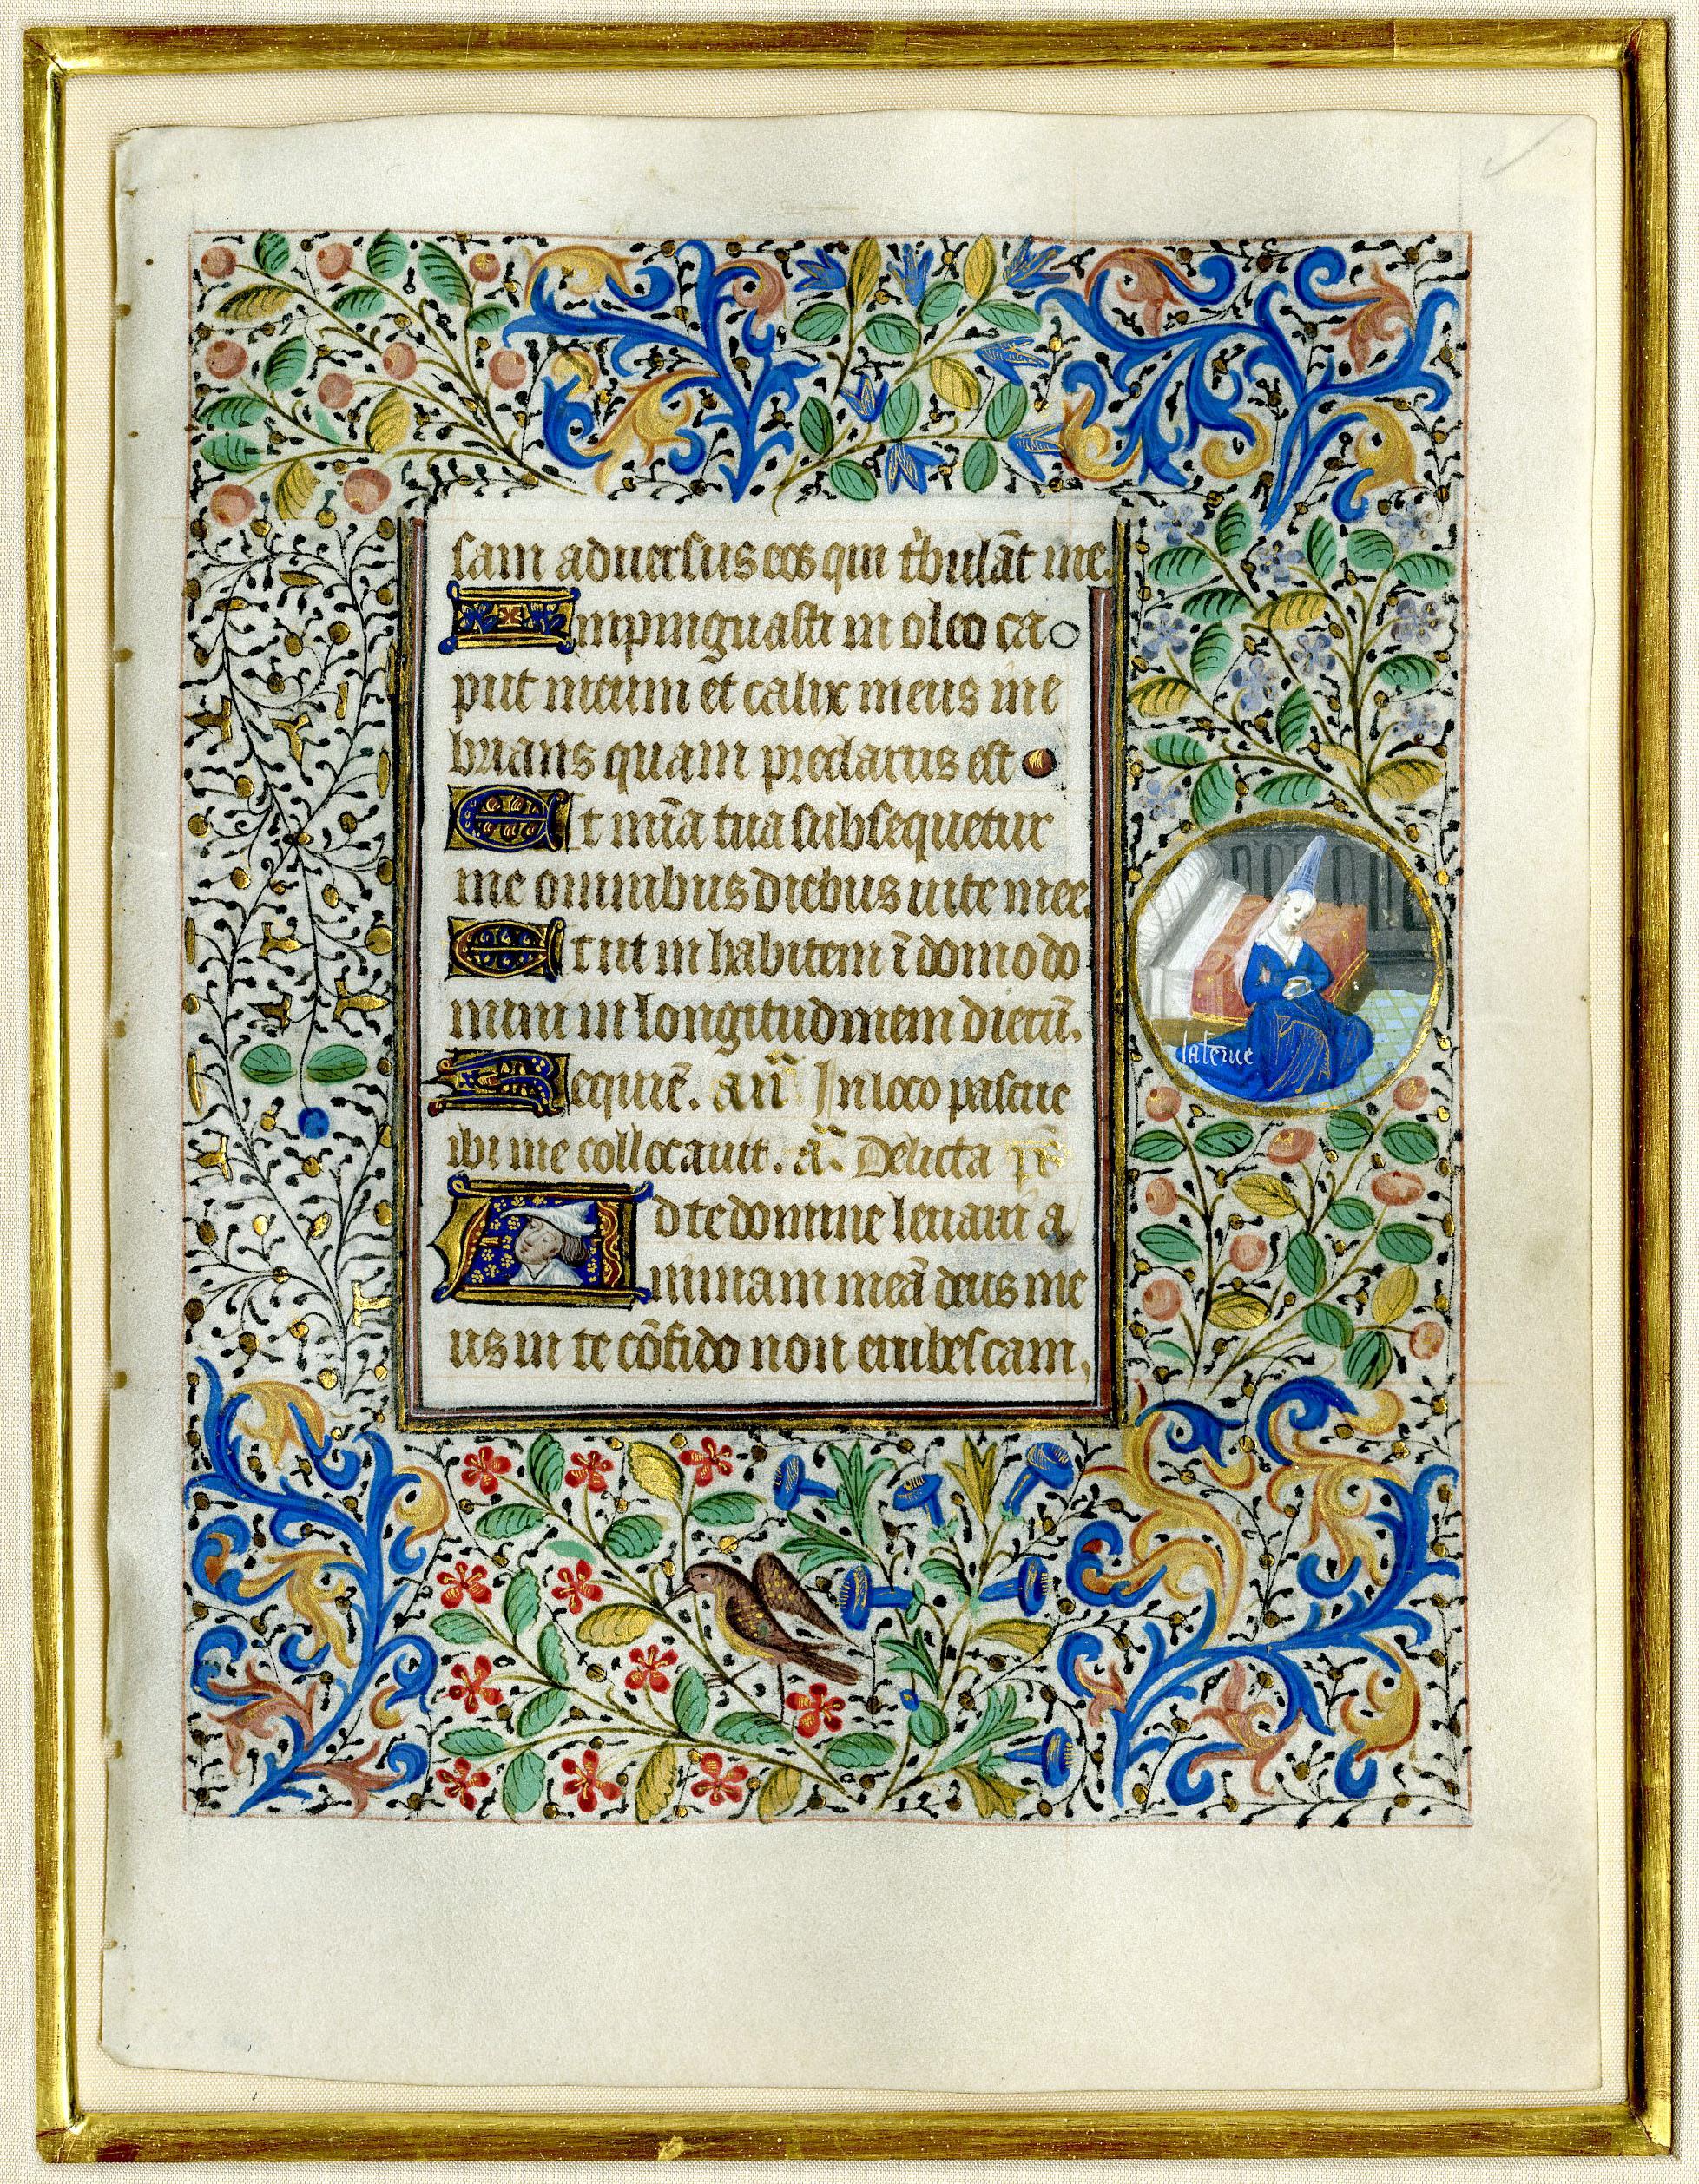 sam aduersus eos qui t'bulāt me.
Inpinguasti in oleo ca
put meum et calix meus ine
brians quam preclarus est
Et mīa tua subsequetur
me omnibus diebus uite mee.
Et ut inhabitem ī domo do
mini in longitudinem dierū.
Requiē. añ In loco pascue
ibi me collocauit. a. Delicta
Ad te domine leuaui a
nimam meā deus me
us in te cōfido non erubescam,
la feme